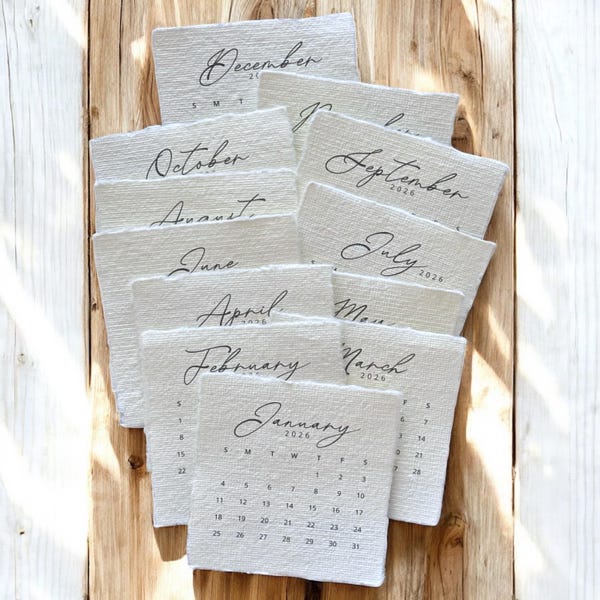 December
S M T
October
September
2026
August
June
July
2026
April
2026
May
February
S
1
8
15
22
March
2026
F S
6 7
13 14
20 21
27 28
January
2026
S M T W T F S
1 2 3
4 5 6 7 8 9 10
11 12 13 14 15 16 17
18 19 20 21 22 23 24
25 26 27 28 29 30 31